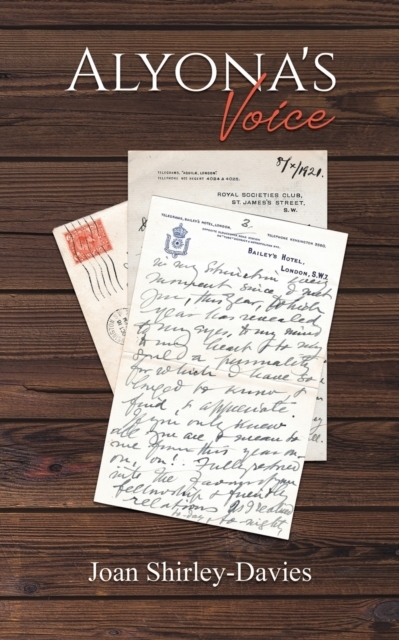 ALYONA'S
Voice
8/X/1921.
TELEGRAMS,
LONDON.
TELEPHONE
ROYAL SOCIETIES CLUB,
ST. JAMES'S STREET,
S.W.
TELEGRAMS, BAILEY'S HOTEL, LONDON.
3.
TELEPHONE KENSINGTON
BAILEY'S HOTEL,
LONDON, S.W.7.
in my
moment since I met
you, this year, which
year has revealed
to my eyes, to my mind
to my heart & to my
soul a personality
for which I have so
longed to know, to
find, & appreciate
If you only knew
all you are & mean to
me from this year on-
on, on!! Fully
into the
fellowship & friendly
relations as I
to-day, to-night
Joan Shirley-Davies